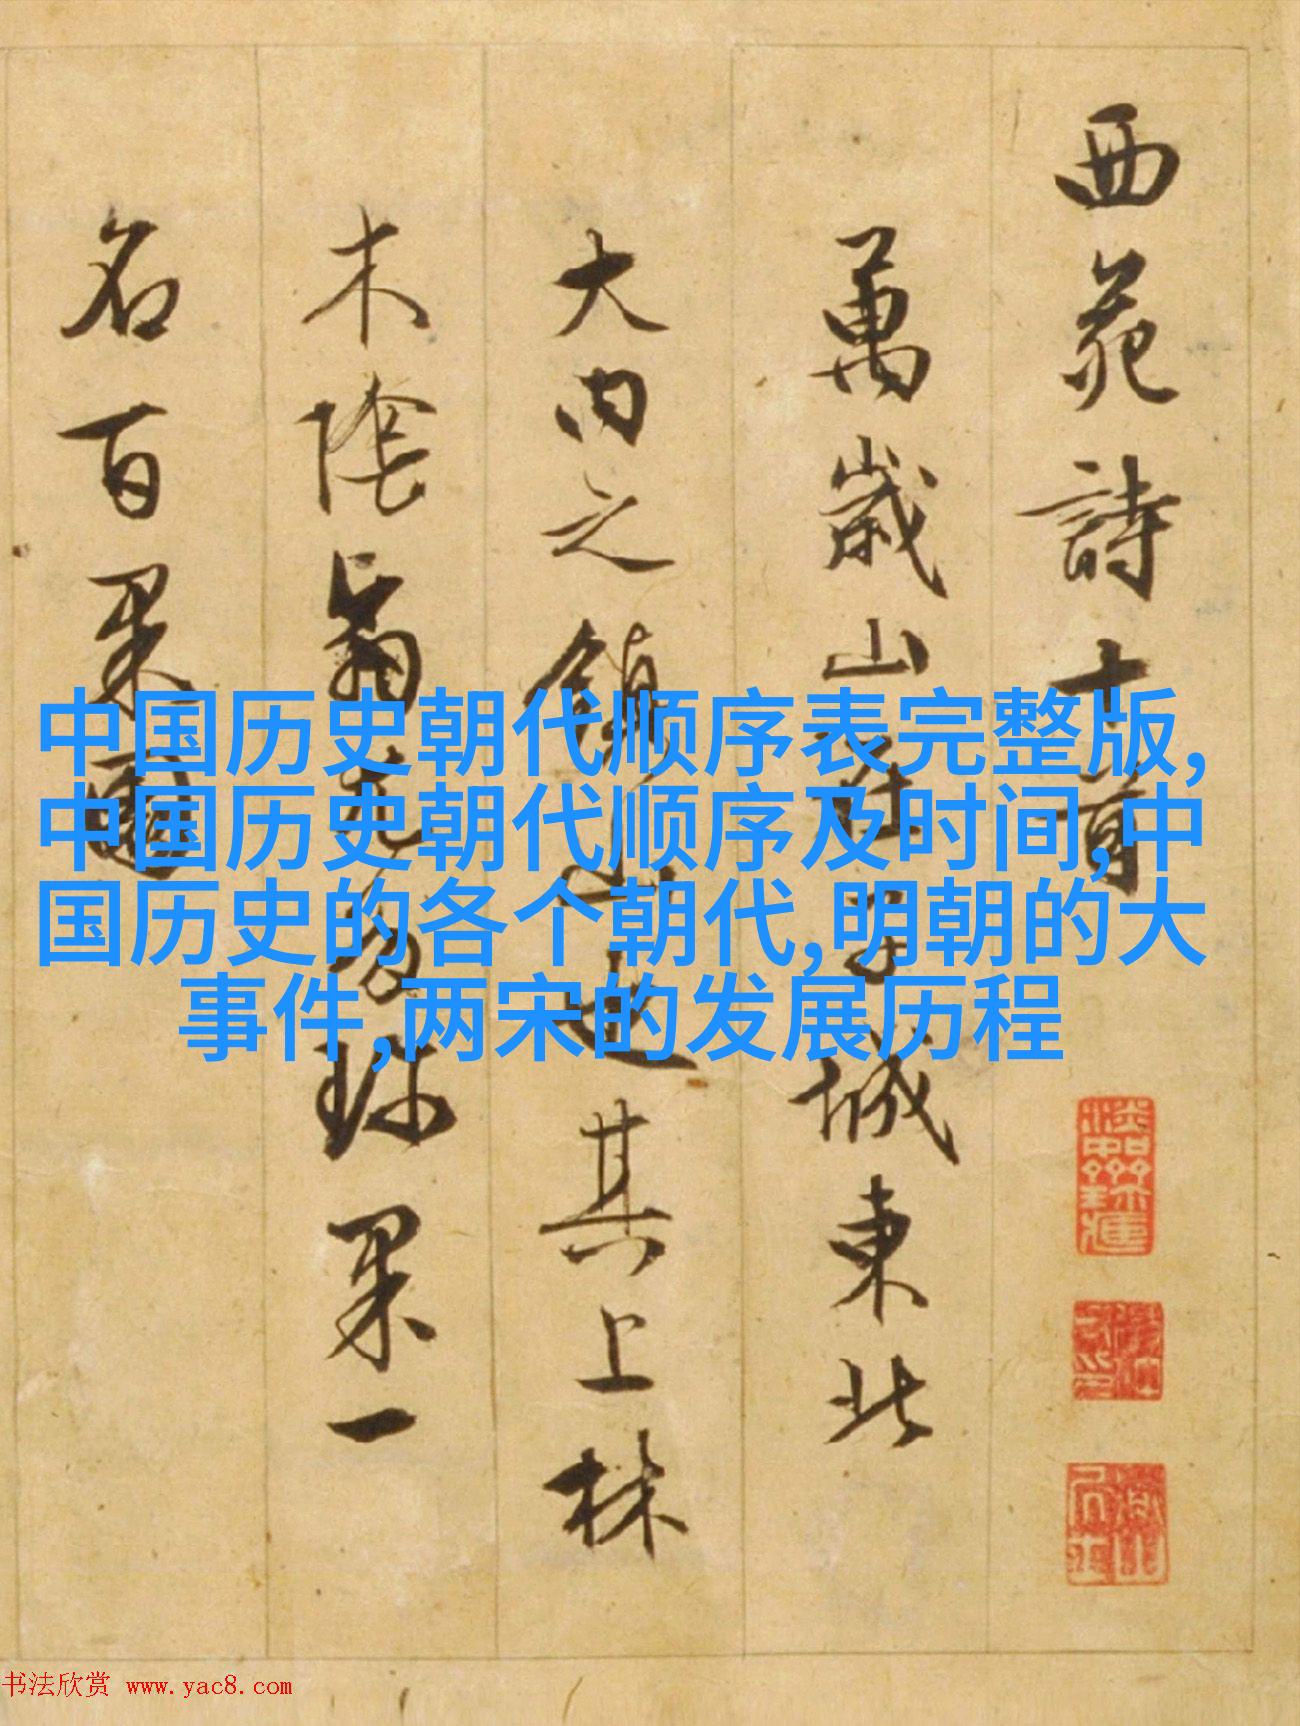 西苑詩十首
萬歲山在子城東北
大内之鎮山也其上林
木陰翳尤多珍果一
名百果園
中国历史朝代顺序表完整版,
中国历史朝代顺序及时间,中
国历史的各个朝代,明朝的大
事件,两宋的发展历程
书法欣赏 www.yac8.com